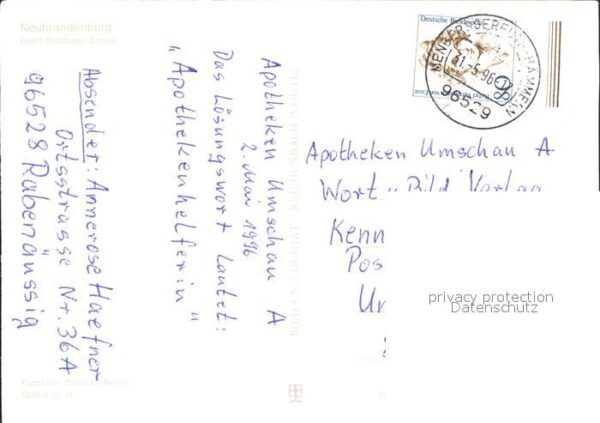 Neubrandenburg
Ernst-Thälmann-Straße
Absender: Annerose Haefner
Ortsstrasse Nr. 36A
96528 Rabenäussig
Apotheken Umschau A
2. Mai 1996
Das Lösungswort Lautet:
„Apothekenhelferin"
Deutsche Bundespost
-5.96-17
96529
Apotheken Umschau A
Wort u. Bild Verlag
Kenn
Pos
Un
privacy protection
Datenschutz